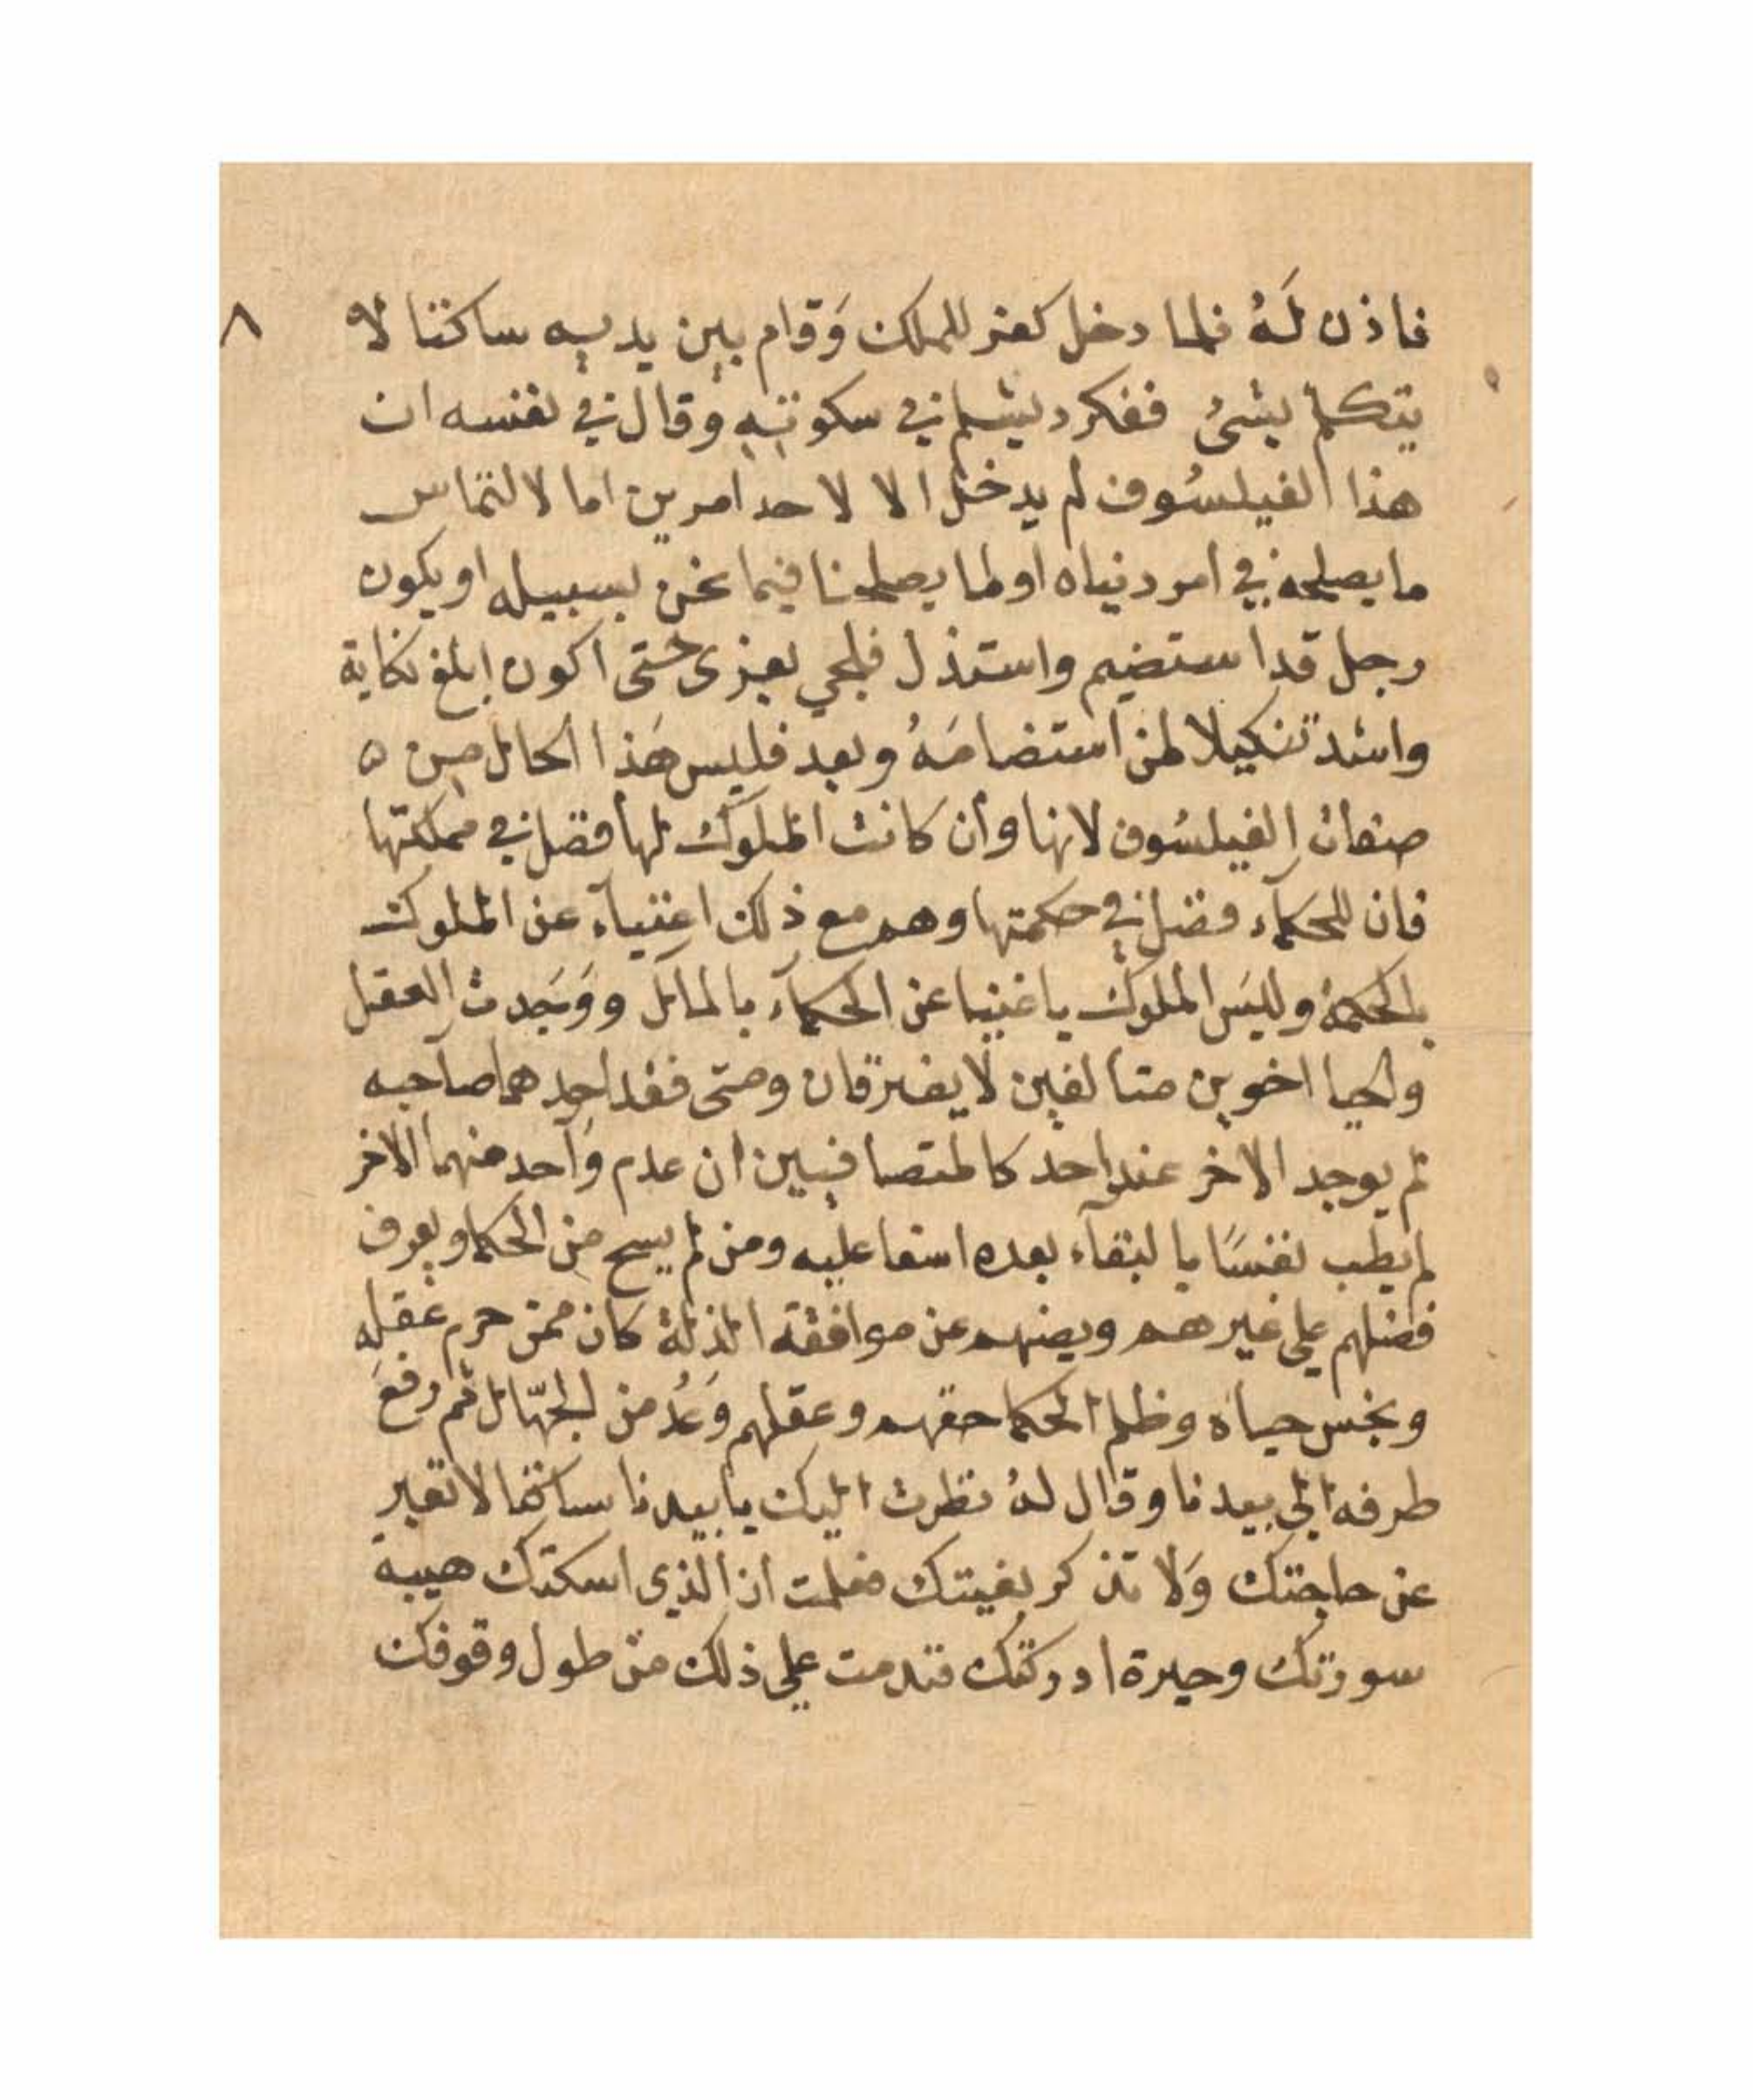 فاذن لَهُ فلما دخل كفر للملك وَقام بين يديه ساكتا لا ٨
يتكلم بشئ ففكر دبشلم في سكوته وقال في نفسه ان
هذا الفيلسُوف لم يدخل الا لاحد امرين اما لالتماس
ما يصلحه في امر دنياه او لما يصلحنا فيما نحن بسبيله او يكون
رجل قد استضيم واستذل فلجي بعزى حتى اكون ابلغ نكاية
واشد تنكيلا لمن استضامَهُ وبعد فليس هَذا الحال من ه
صفات الفيلسُوف لانها وان كانت الملوك لها فضل في مملكتها
فان للحكمآء فضل في حكمتها وهم مع ذلك اغنيآء عن الملوك
بالحكمة وليسَ الملوك باغنيا عن الحكمآء بالمال ووَجَدت العقل
والحيا اخوين متالفين لا يفترقان ومتى فقد احدهما صاحبه
لم يوجد الاخر عند احد كالمتصافيين ان عدم وَاحد منهما الاخر
لم يطب نفسًا بالبقآء بعده اسفا عليه ومن لم يسح من الحكما ويعرف
فضلهم على غيرهم ويصنهم عن موافقة المذلة كان ممن حرم عقله
وبخس حياه وظلم الحكما حقهم وعقلهم وَعُد من الجهّال ثم رفع
طرفه الى بيدنا وقال لهُ نظرت اليك يا بيدنا ساكتا لا تعبر
عن حاجتك وَلا تذكر بغيتك فعلمت ان الذي اسكتك هيبة
سورتك وحيرة ادركتك فتدمت على ذلك من طول وقوفك